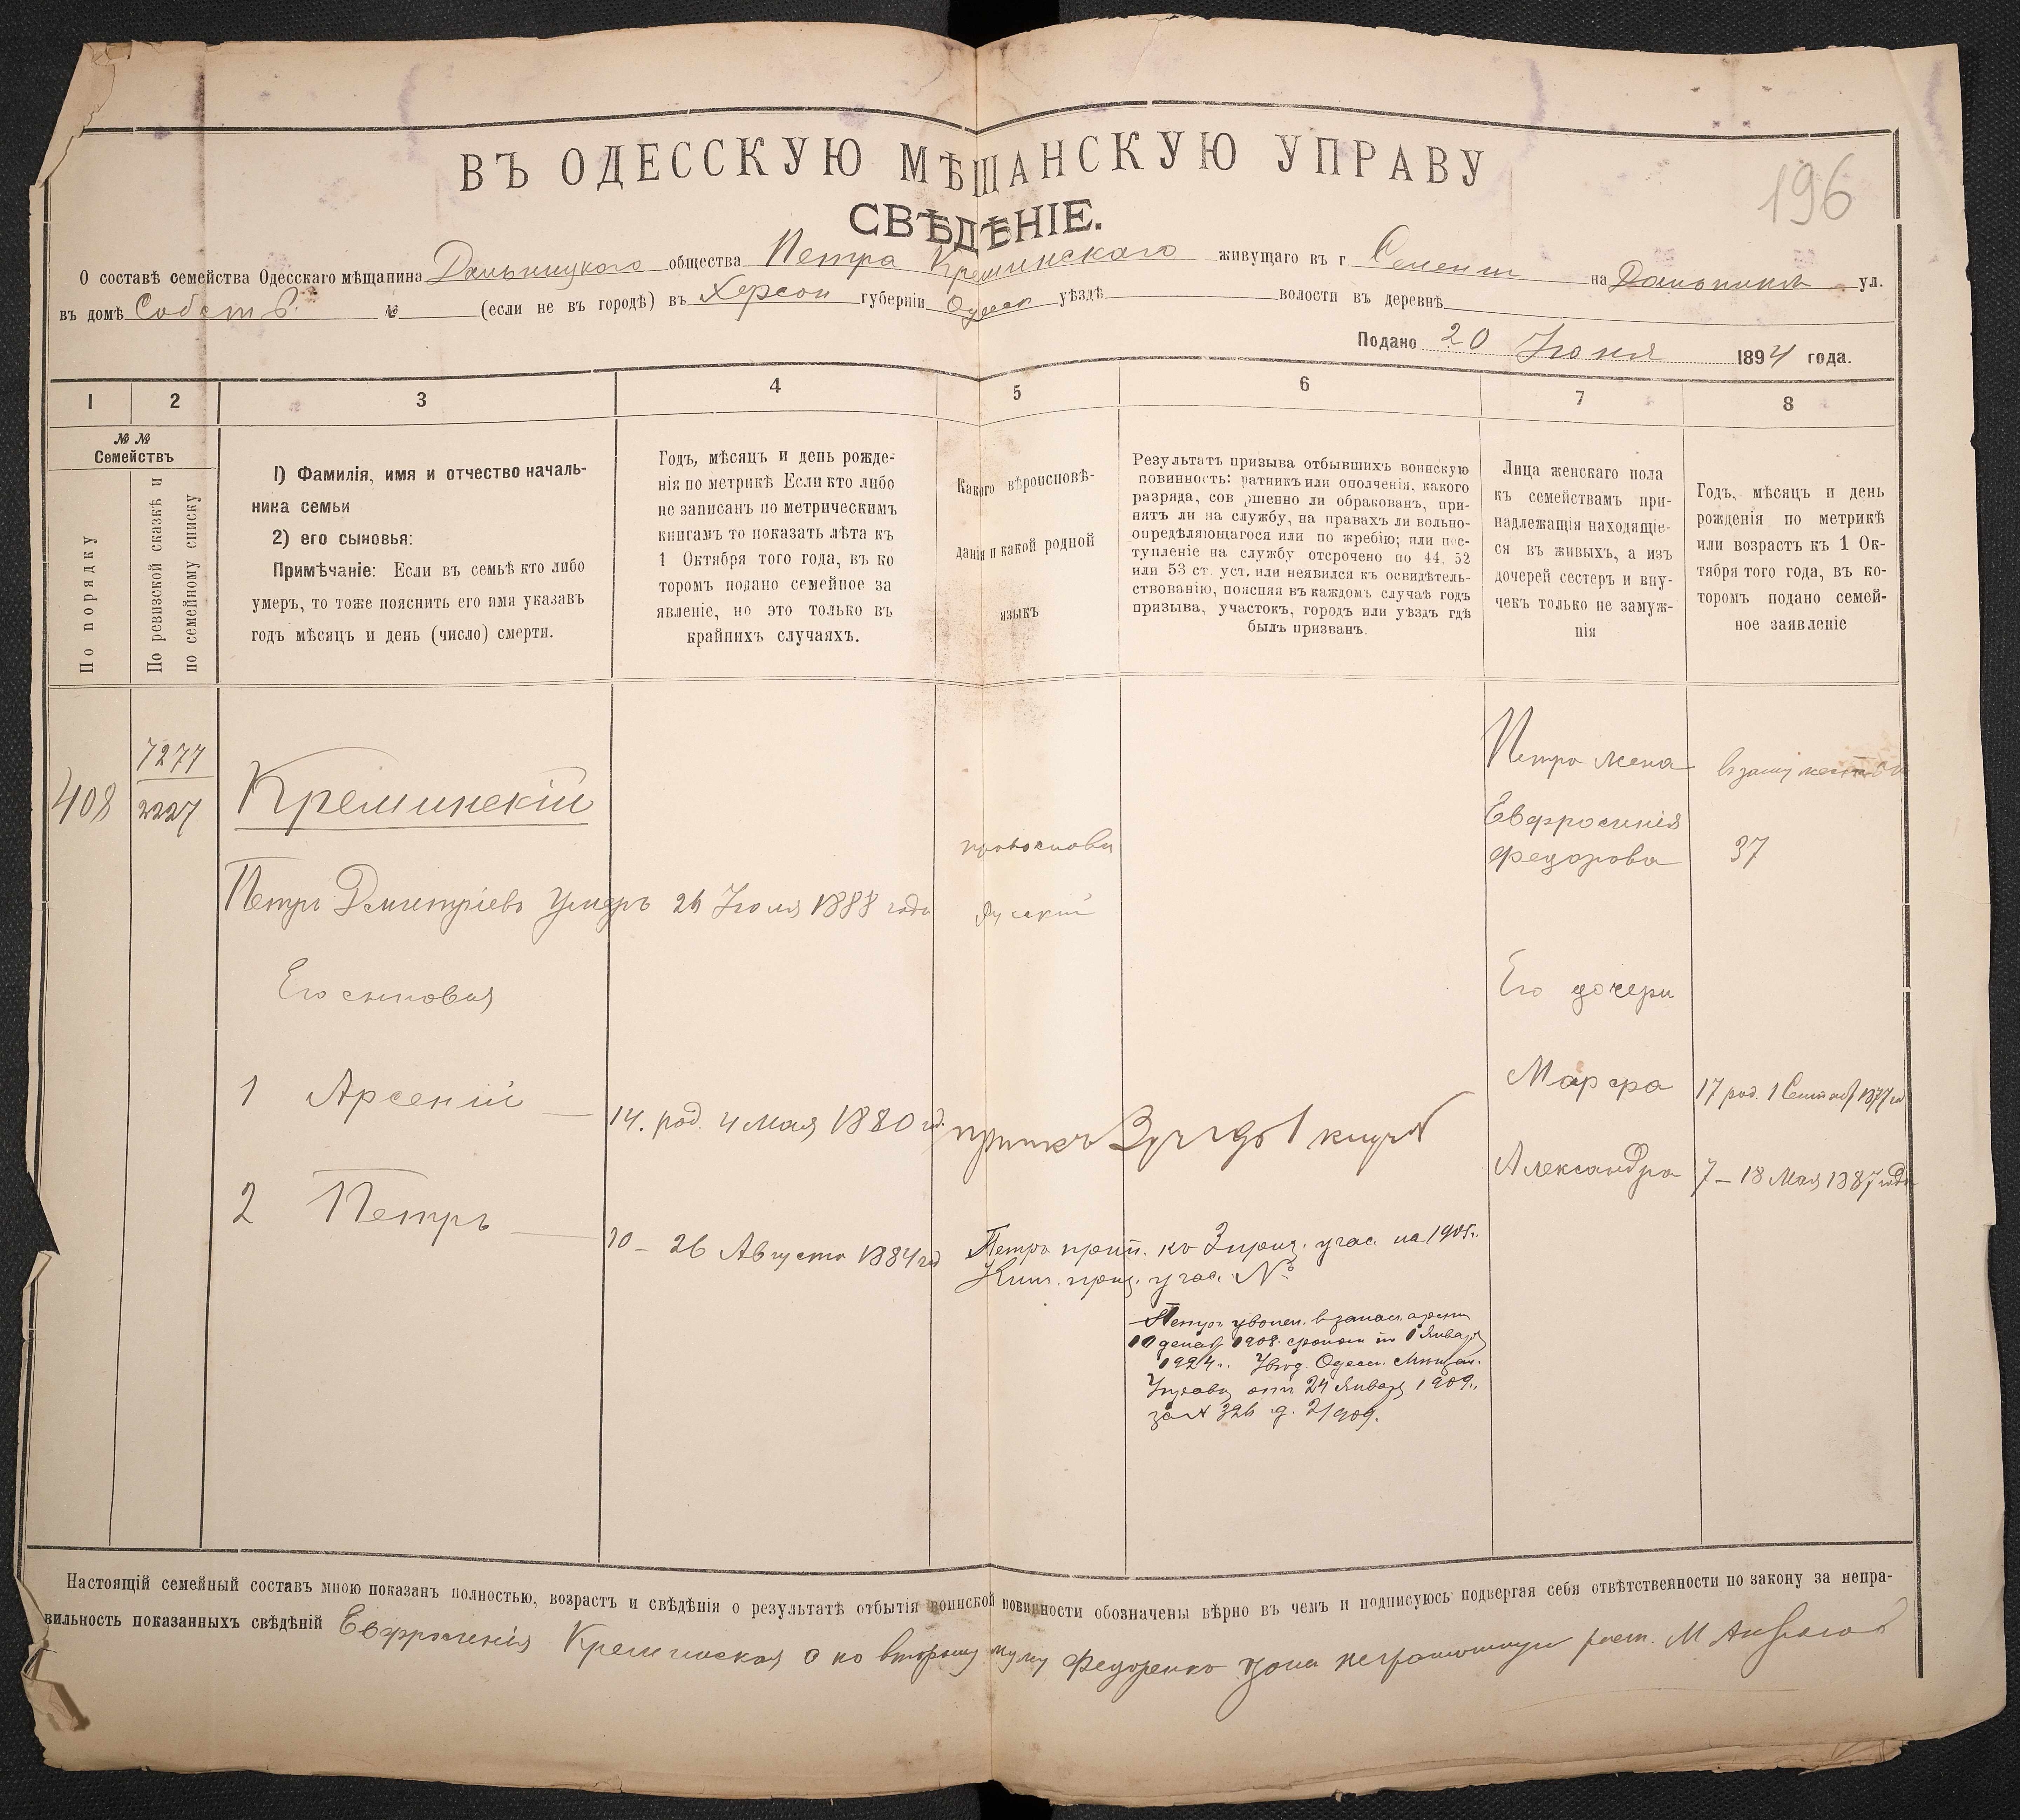 196
ВЪ ОДЕССКУЮ МѢЩАНСКУЮ УПРАВУ
СВѢДѢНІЕ.
О составѣ семейства Одесскаго мѣщанина Дальницкого общества Петра Креминскаго живущаго въ г на Дальникъ ул.
въ домѣ Собств. № (если не въ городѣ) въ Херсон губерніи Одесск уѣздѣ волости въ деревнѣ
Подано 20 Іюня 1894 года.
1 2 3 4 5 6 7 8
№ №
Семействъ
По порядку
По ревизской сказкѣ и
по семейному списку
1) Фамилія, имя и отчество началь-
ника семьи
2) его сыновья:
Примѣчаніе: Если въ семьѣ кто либо
умеръ, то тоже пояснить его имя указавъ
годъ мѣсяцъ и день (число) смерти.
Годъ, мѣсяцъ и день рожде-
нія по метрикѣ Если кто либо
не записанъ по метрическимъ
книгамъ то показать лѣта къ
1 Октября того года, въ ко
торомъ подано семейное за
явленіе, но это только въ
крайнихъ случаяхъ.
Какого вѣроисповѣ-
данія и какой родной
языкъ
Результатъ призыва отбывшихъ воинскую
повинность: ратникъ или ополченія, какого
разряда, сов ршенно ли обракованъ, при-
нятъ ли на службу, на правахъ ли вольно-
опредѣляющагося или по жребію; или пос-
тупленіе на службу отсрочено по 44, 52
или 53 ст. уст. или неявился къ освидѣтель-
ствованію, поясняя въ каждомъ случаѣ годъ
призыва, участокъ, городъ или уѣздъ гдѣ
былъ призванъ.
Лица женскаго пола
къ семействамъ при-
надлежащія находящіе-
ся въ живыхъ, а изъ
дочерей сестеръ и вну-
чекъ только не замуж-
нія
Годъ, мѣсяцъ и день
рожденія по метрикѣ
или возрастъ къ 1 Ок-
тября того года, въ ко-
торомъ подано семей-
ное заявленіе
408
7277
2227
Креминскій
Петръ Дмитріевъ умеръ 26 Іюля 1888 года
православн
Русский
Петра жена
Евфросинія
Федорова
37
Его сыновья
Его дочери
1 Арсеній — 14. род. 4 Мая 1880 год.
Марфа 17 род. 1 Сентяб 1877 го
2 Петръ — 10 — 26 Августа 1884 год
Александра 7 — 18 Мая 1887 года
Петръ прип. къ 3 приз. учас. на 1905г.
приз. учас. №
Петръ уволен. в запас арміи
10 декаб. 1908. сроком по 1 Январ
1924г. Увед. Одесск. Мѣщан.
Управы отъ 24 Январ. 1909г.
за № 326 д. 2/909.
Настоящій семейный составъ мною показанъ полностью, возрастъ и свѣдѣнія о результатѣ отбытія воинской повинности обозначены вѣрно въ чемъ и подписуюсь подвергая себя отвѣтственности по закону за непра-
вильность показанныхъ свѣдѣній Евфросинія Креминская а по второму мужу Федоренко